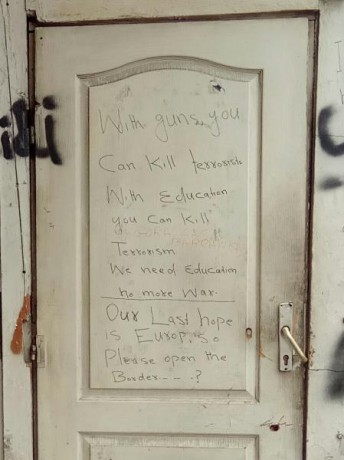 With guns, you
Can Kill terrorists
With Education
you Can Kill
Terrorism
We need Education
no more War.
Our Last hope
is Europ, so
Please open the
Border - - - . ?